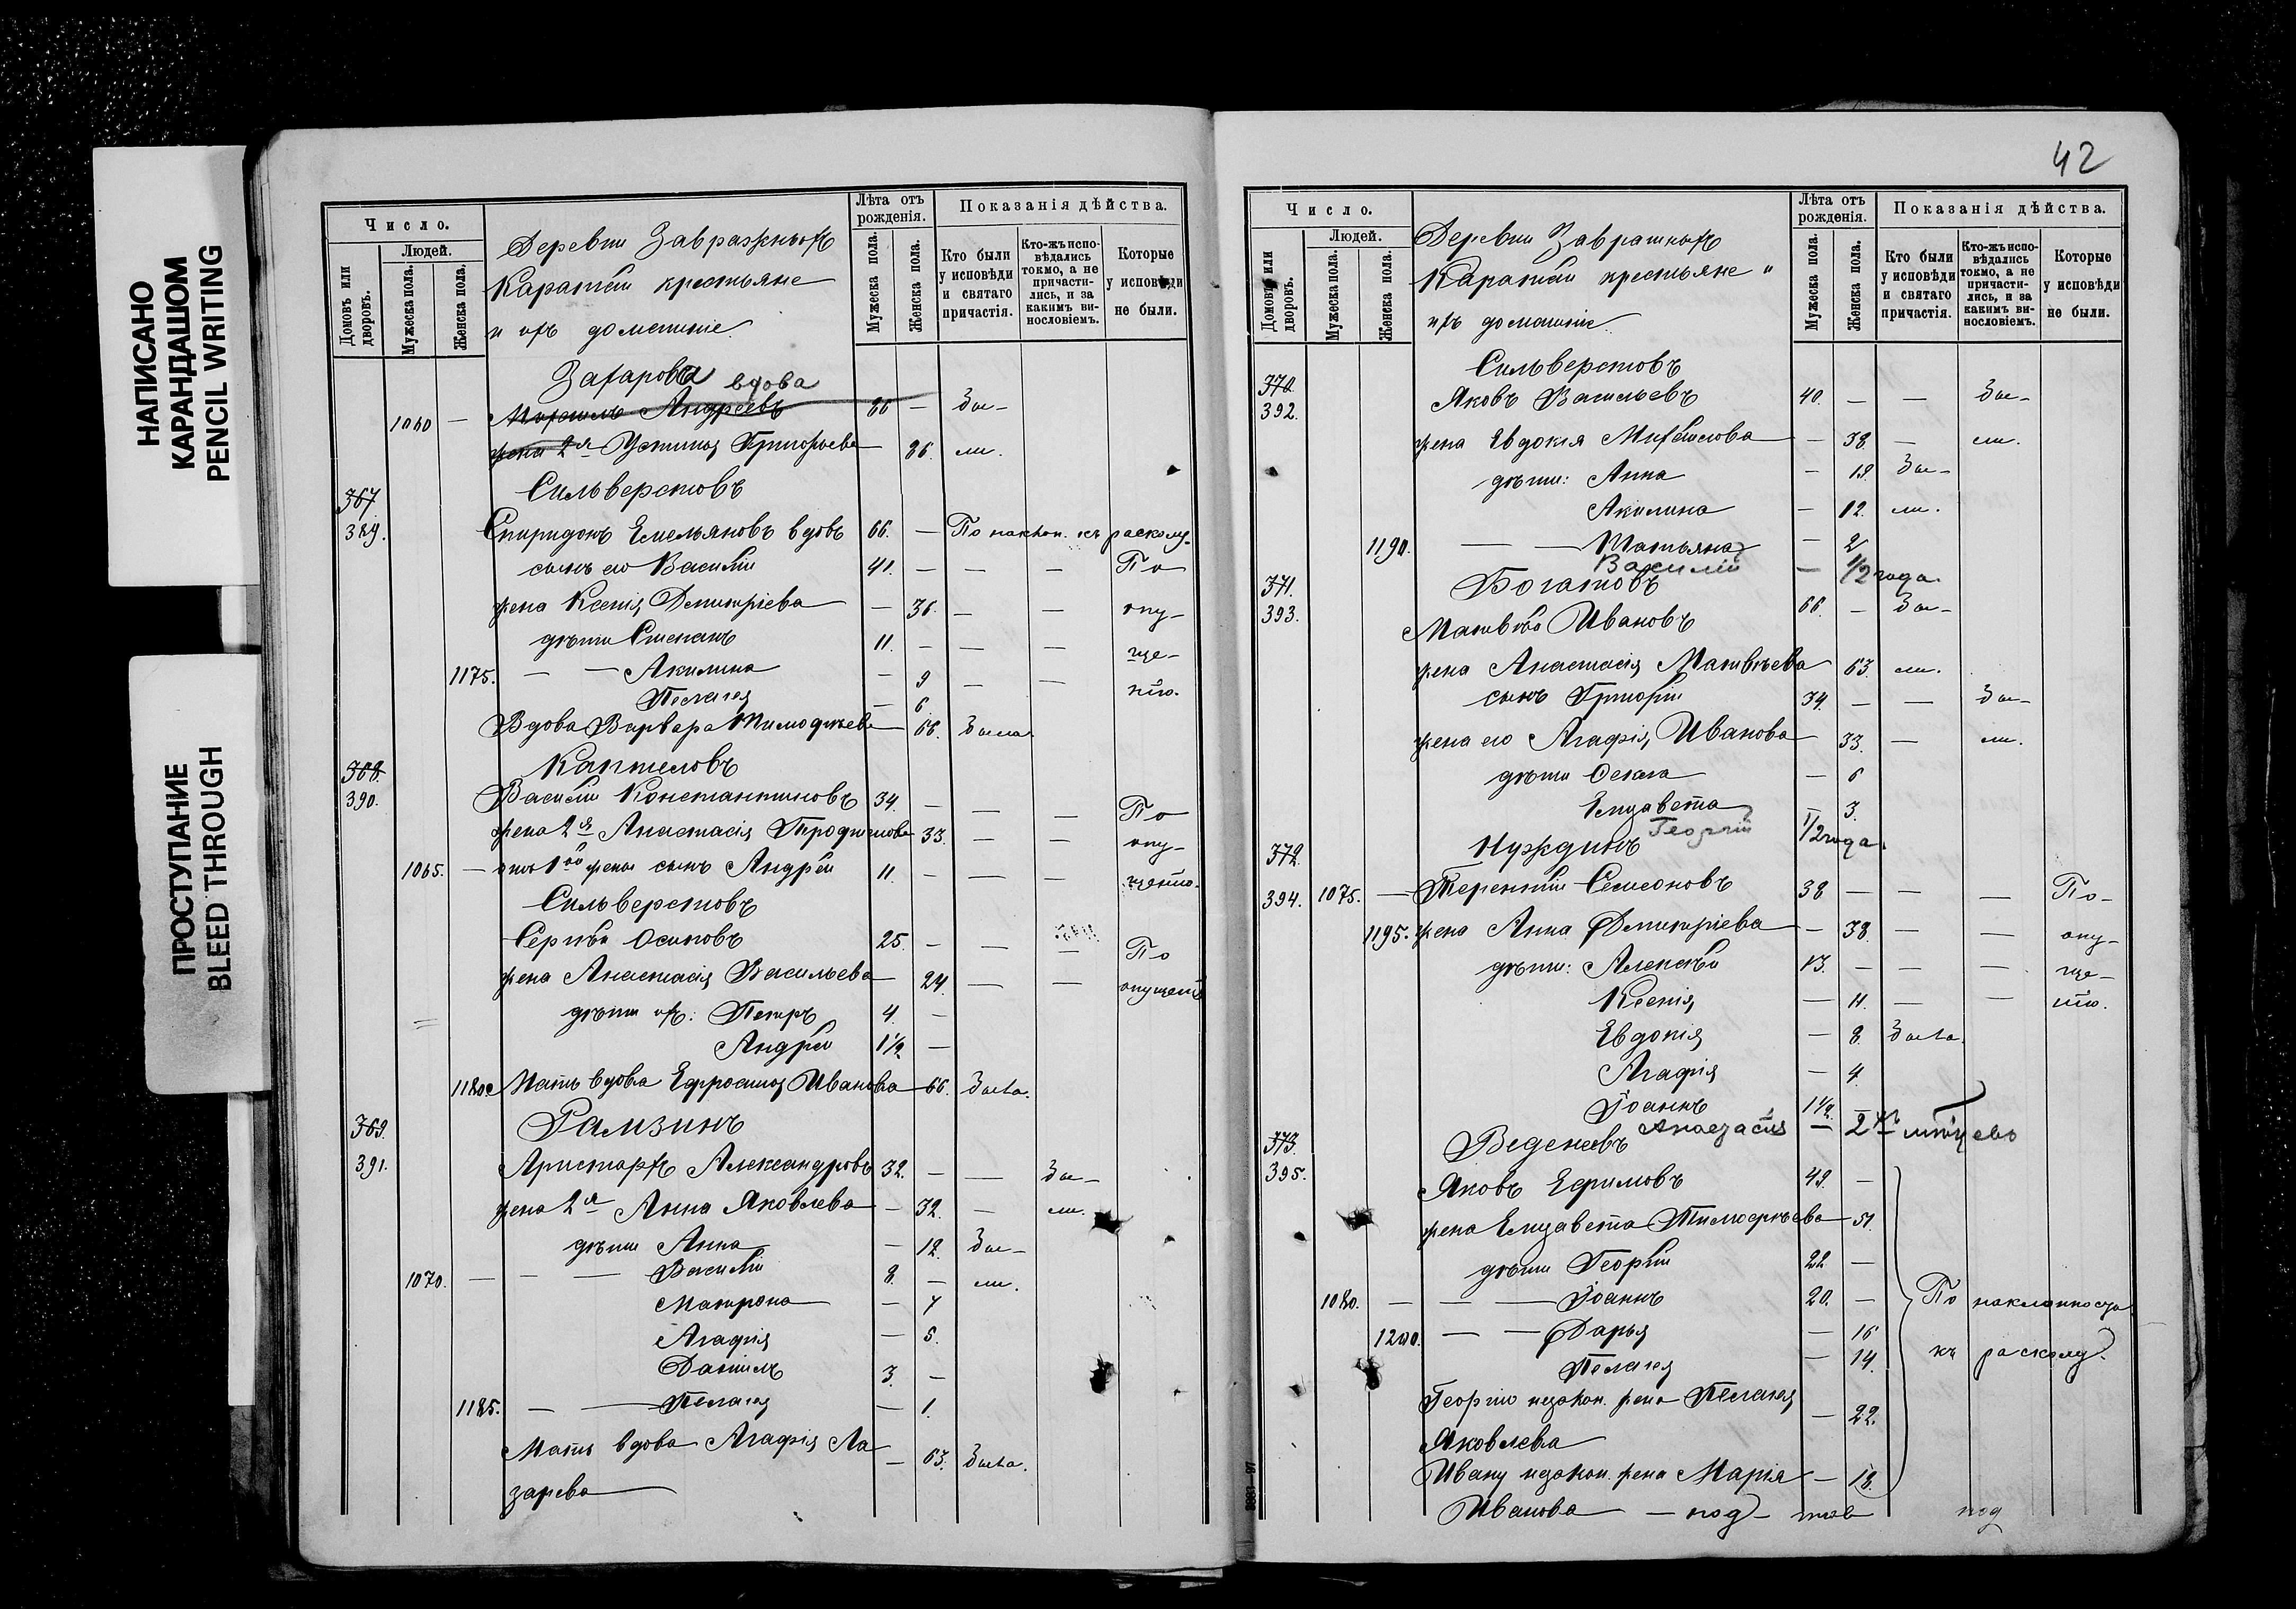 НАПИСАНО
КАРАНДАШОМ
PENCIL WRITING
ПРОСТУПАНИЕ
BLEED THROUGH
Число.
Домовъ или дворовъ.
Людей.
Мужеска пола.
Женска пола.
Деревни Завражныхъ
Каратай крестьяне
и ихъ домашніе.
Лѣта отъ рожденія.
Мужеска пола.
Женска пола.
Показанія дѣйства.
Кто были у исповѣди и святаго причастія.
Кто-жъ исповѣдались токмо, а не причастились, и за какимъ винословіемъ.
Которые у исповѣди не были.
Захарова вдова
1060 — Андреевъ 86 — Бы-
жена 2я Устинія Григорьева 86. ли.
367 Сильверстовъ
389. Спиридонъ Емельяновъ вдовъ 66. — По наклон. къ расколу.
сынъ его Василій 41. — — — По
жена Ксенія Димитріева — 36. — — опу-
дѣти Степанъ 11. — — — ще-
1175. — — Акилина — 9 — — нію.
Пелагея — 6
Вдова Варвара Тимофѣева 68. Была
368. Каптеловъ
390. Василій Константиновъ 34. — — — По
жена 2я Анастасія Трофимова 33. — — опу-
1065. — отъ 1ой жены сынъ Андрей 11. — — — щенію.
Сильверстовъ
Сергѣй Осиповъ 25. — — — По
жена Анастасія Васильева 24. — — опущені
дѣти ихъ: Петръ 4. —
Андрей 1½ —
1180. Мать вдова Ефросинія Иванова 66. Была.
369. Рамзинъ
391. Аристархъ Александровъ 32. — — Бы-
жена 2я Анна Яковлева — 32. — ли.
дѣти Анна — 12. Бы-
1070. — — — Василій 8. — ли.
Матрона — 7
Агафія — 5.
Даніилъ 3. —
1185. — — Пелагея — 1.
Мать вдова Агафія Ла — 63. Была.
зарева
42
Число.
Домовъ или дворовъ.
Людей.
Мужеска пола.
Женска пола.
Деревни Завражныхъ
Каратай крестьяне и
ихъ домашніе.
Лѣта отъ рожденія.
Мужеска пола.
Женска пола.
Показанія дѣйства.
Кто были у исповѣди и святаго причастія.
Кто-жъ исповѣдались токмо, а не причастились, и за какимъ винословіемъ.
Которые у исповѣди не были.
370. Сильверстовъ
392. Яковъ Васильевъ 40. — — Бы-
жена Евдокія Михайлова — 38. — ли.
дѣти: Анна — 19. Бы-
Акилина — 12. ли.
1190. — — Татьяна — 2
Василій — 1/2 года.
371. Богатовъ
393. Матвѣй Ивановъ 66. — Бы-
жена Анастасія Матвѣева 63. ли.
сынъ Григорій 34. — — Бы-
жена его Агафія Иванова 33. — ли.
дѣти Ѳекла — 6
Елизавета — 3.
Георгій 1/2 года.
372. Нуждинъ
394. 1075. — Терентій Семеоновъ 38 — — — По-
1195. жена Анна Димитріева — 38. — — опу-
дѣти: Алексѣй 13. — — — ще-
Ксенія — 11. — — нію.
Евдокія — 8. Была.
Агафія — 4.
Іоаннъ 1½. —
Анастасія — 2хъ мѣсяцевъ
373. Веденеевъ
395. Яковъ Ефимовъ 49. —
жена Елизавета Тимофѣева 51.
дѣти Георгій 22 —
1080. — — — Іоаннъ 20. — По наклонности
1200. — — Дарья — 16
Пелагея — 14. къ расколу.
Георгію незакон. жена Пелагея — 22.
Яковлева
Ивану незакон. жена Марія — 18.
Иванова